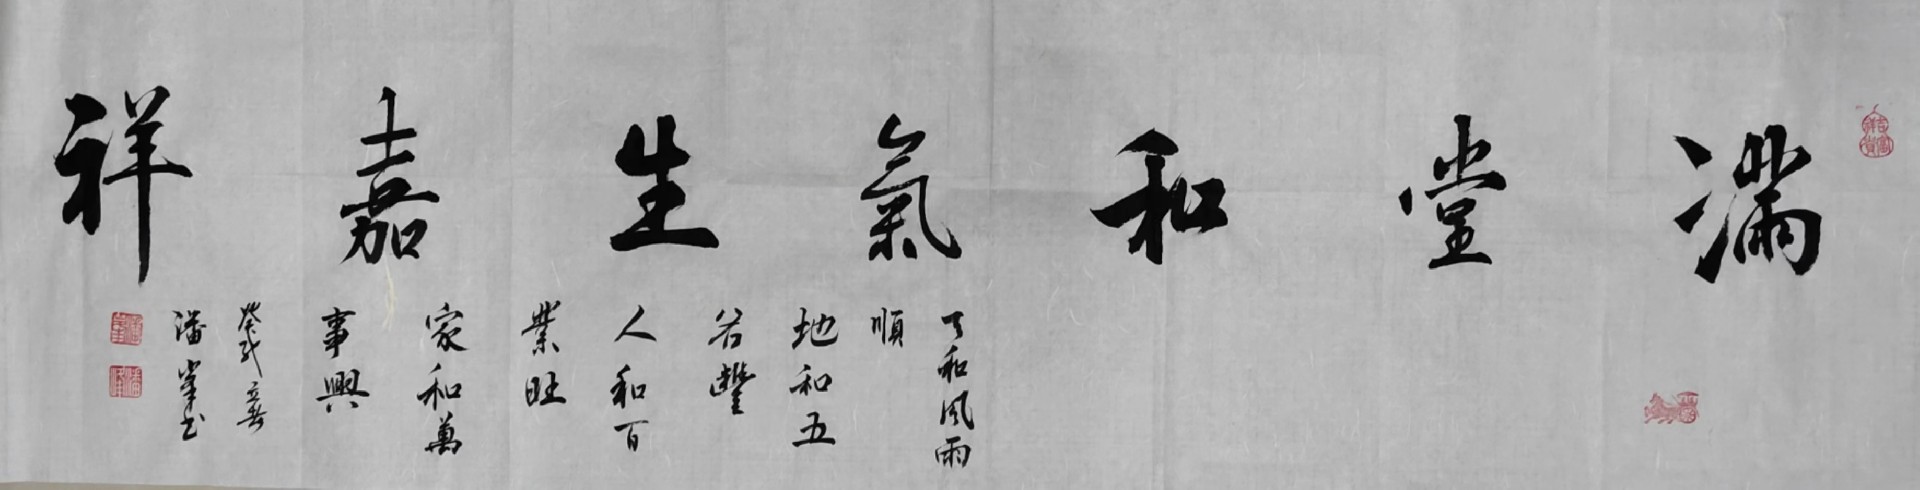 滿堂和氣生嘉祥
天和風雨
順
地和五
谷豐
人和百
業旺
家和萬
事興
潘峯书